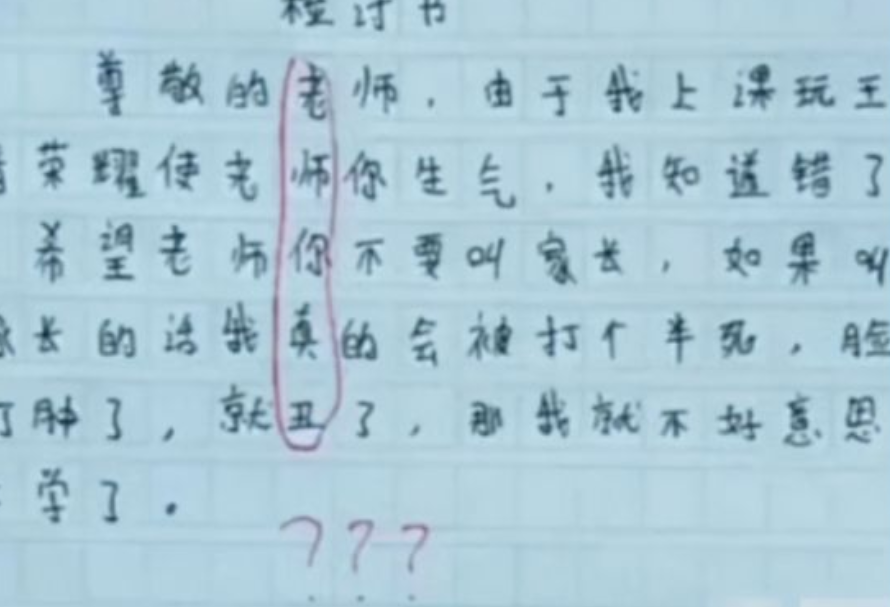 检讨书
尊敬的老师，由于我上课玩王
荣耀使老师你生气，我知道错了
希望老师你不要叫家长，如果叫
长的话我真的会被打个半死，脸
肿了，就丑了，那我就不好意思
学了。
???